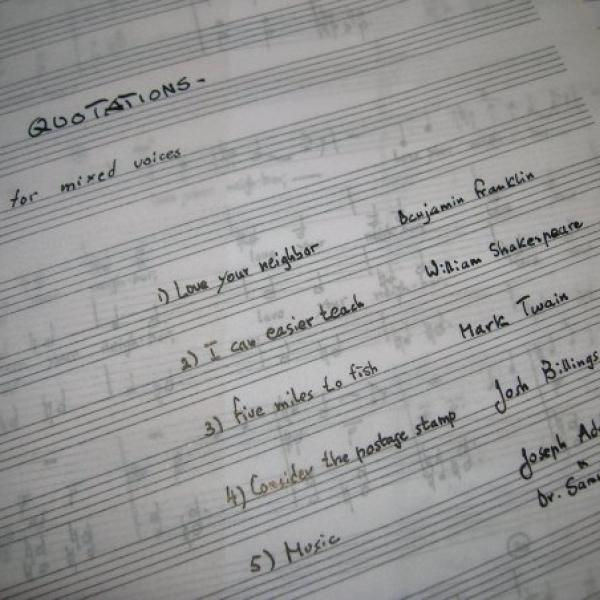 QUOTATIONS-
for mixed voices
1) Love your neighbor Benjamin Franklin
2) I can easier teach William Shakespeare
3) five miles to fish Mark Twain
4) Consider the postage stamp Josh Billings
5) Music Joseph Ad
Dr. Sam